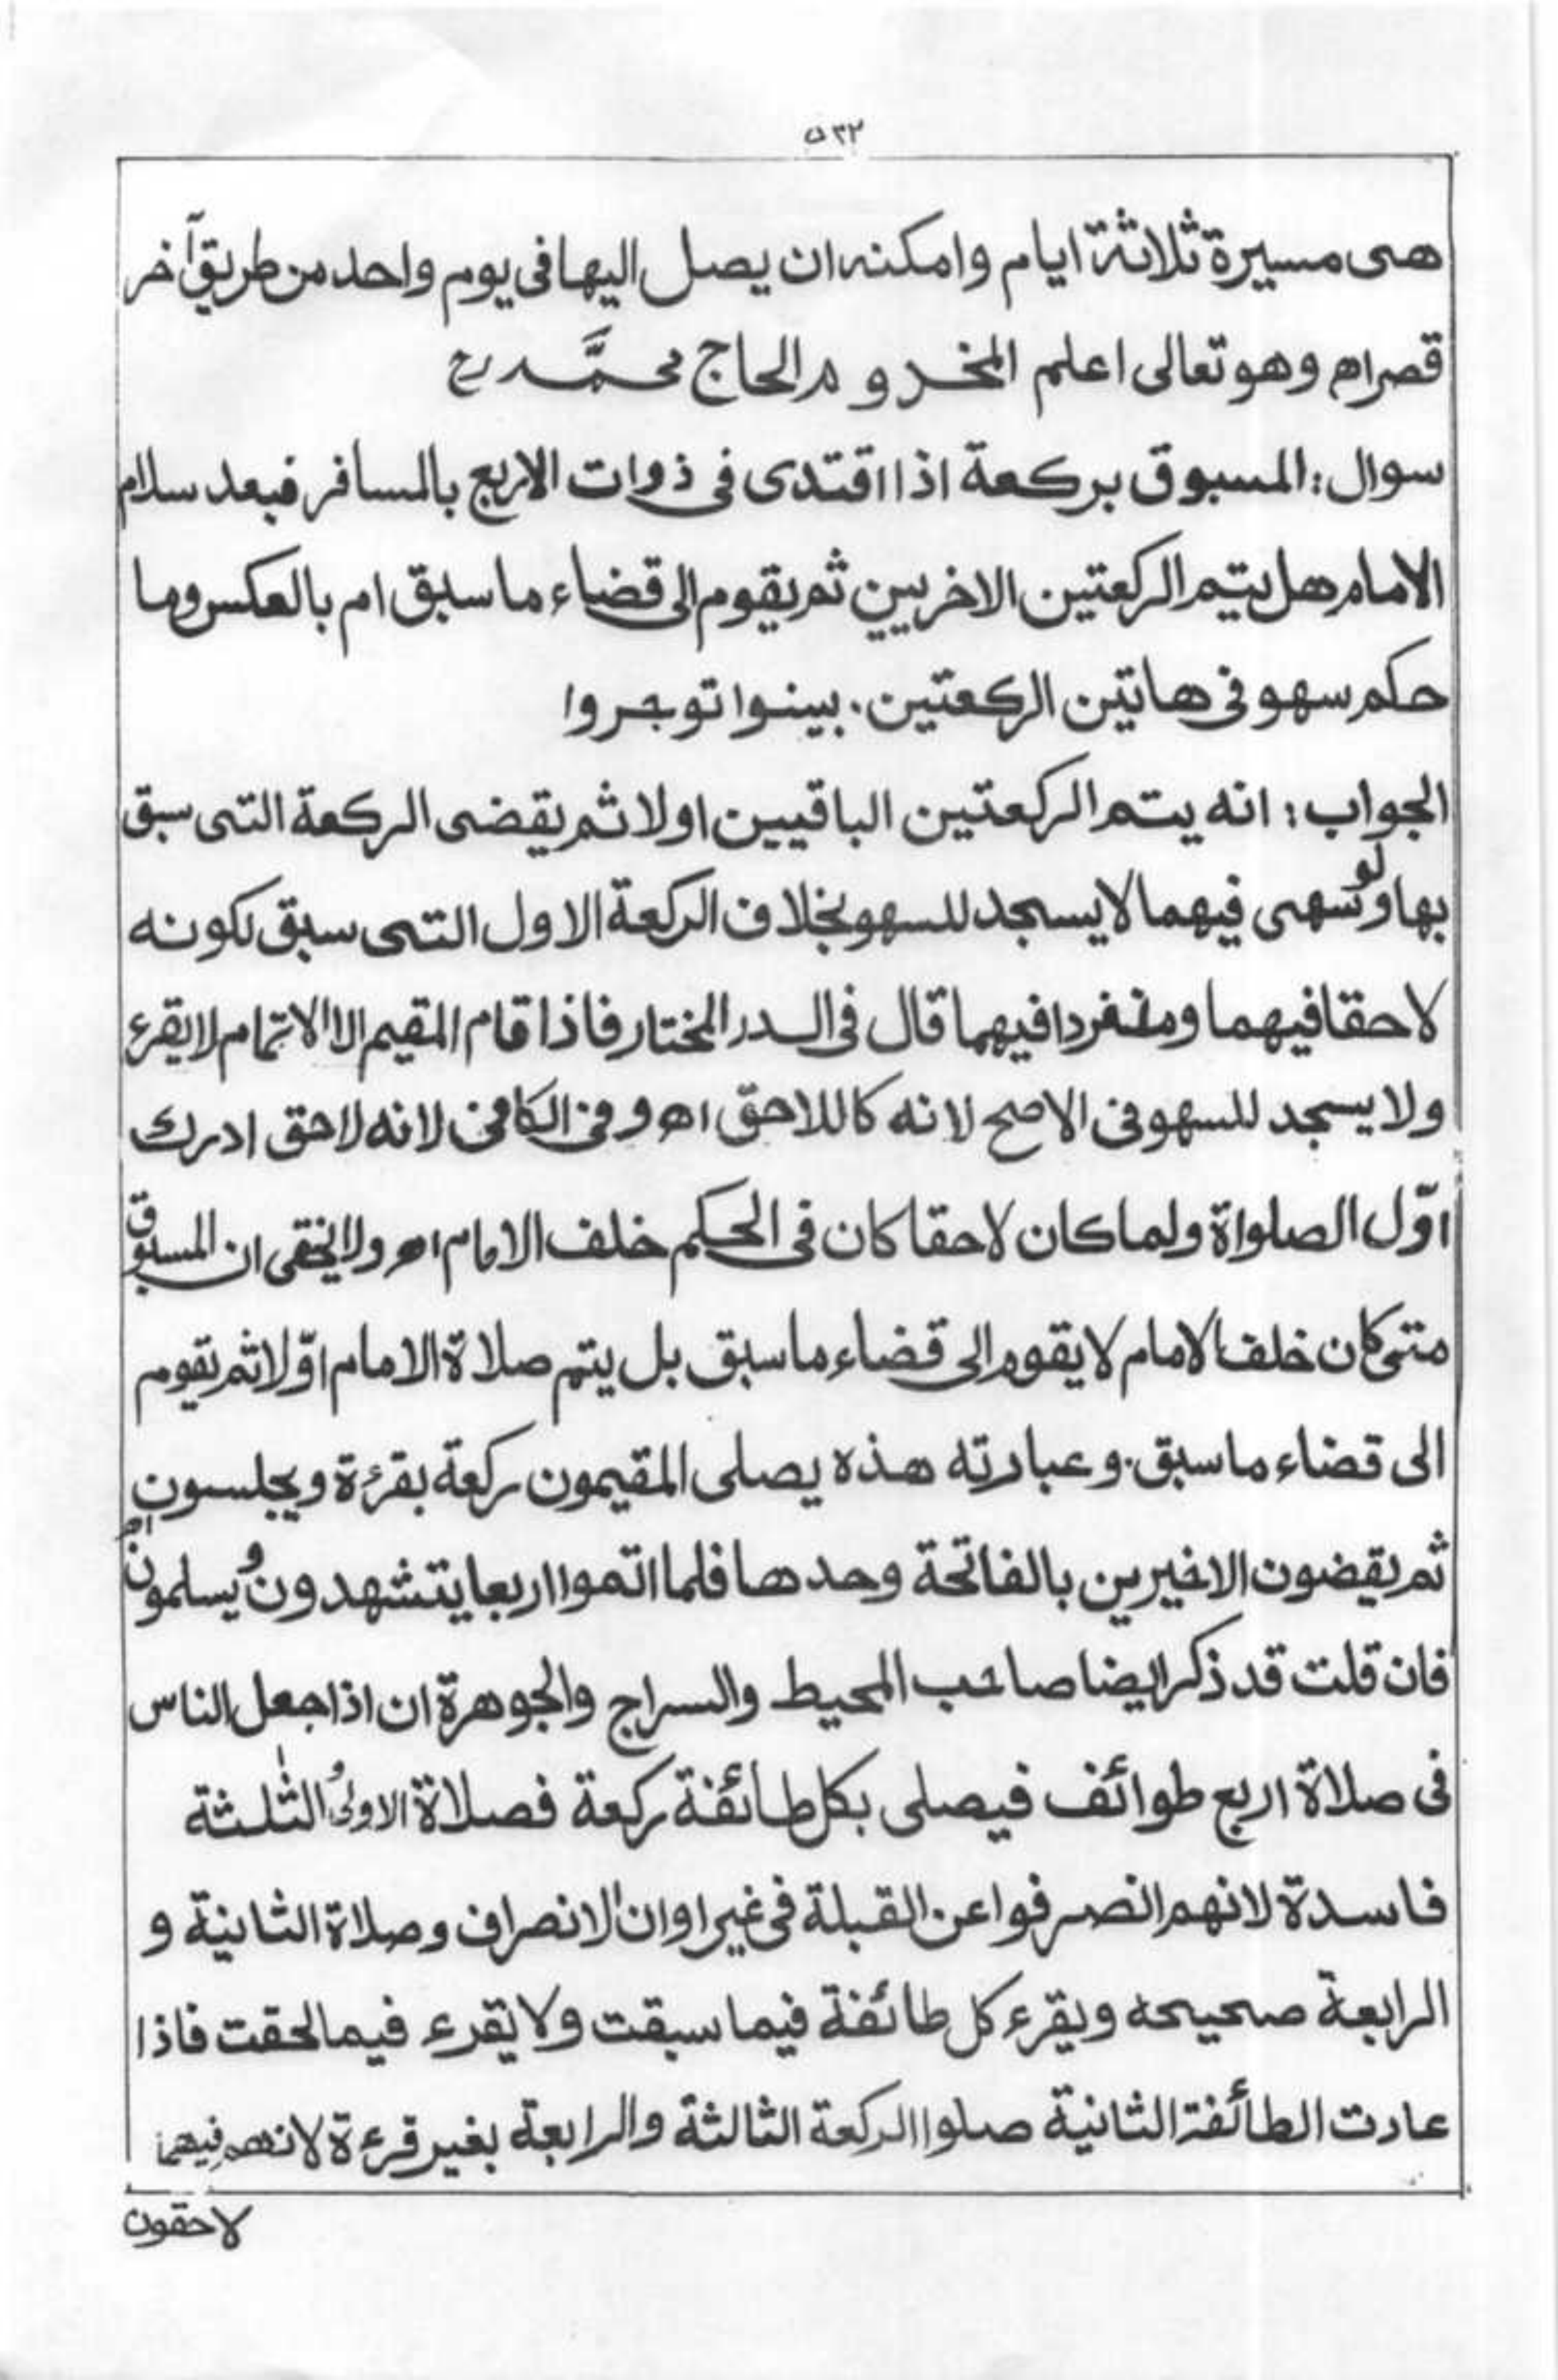 ٥٣٢
هى مسيرة ثلاثة ايام وامكنه ان يصل اليها فى يوم واحد من طريق آخر
قصر اه وهو تعالى اعلم المخدوم الحاج محمَّد رح
سوال: المسبوق بركعة اذا اقتدى فى ذوات الاربع بالمسافر فبعد سلام
الامام هل يتيم الركعتين الاخريين ثم يقوم الى قضاء ما سبق ام بالعكس وما
حكم سهو فى هاتين الركعتين. بينوا توجروا
الجواب: انه يتم الركعتين الباقيين اولا ثم يقضى الركعة التى سبق
بها ولو سهى فيهما لا يسجد للسهو بخلاف الركعة الاول التى سبق لكونه
لاحقا فيهما ومنفردا فيهما قال فى الدر المختار فاذا قام المقيم الا الاتمام لا يقرء
ولا يسجد للسهو فى الاصح لانه كاللاحق اه و فى الكافى لانه لاحق ادرك
اوّل الصلواة ولما كان لاحقا كان فى الحكم خلف الامام اه ولا يخفى ان المسبوق
متى كان خلف الامام لا يقوم الى قضاء ما سبق بل يتم صلاة الامام اوّلا ثم يقوم
الى قضاء ما سبق. وعبارته هذه يصلى المقيمون ركعة بقرءة ويجلسون
ثم يقضون الاخيرين بالفاتحة وحدها فلما اتموا اربعا يتشهدون ويسلمون اه
فان قلت قد ذكر ايضا صاحب المحيط والسراج والجوهرة ان اذا جعل الناس
فى صلاة اربع طوائف فيصلى بكل طائفة ركعة فصلاة الاولى و الثٰلثة
فاسدة لانهم انصرفوا عن القبلة فى غير اوان الانصراف وصلاة الثانية و
الرابعة صحيحه ويقرء كل طائفة فيما سبقت ولا يقرء فيما لحقت فاذا
عادت الطائفة الثانية صلوا الركعة الثالثة والرابعة بغير قرءة لانهم فيهما
لاحقون